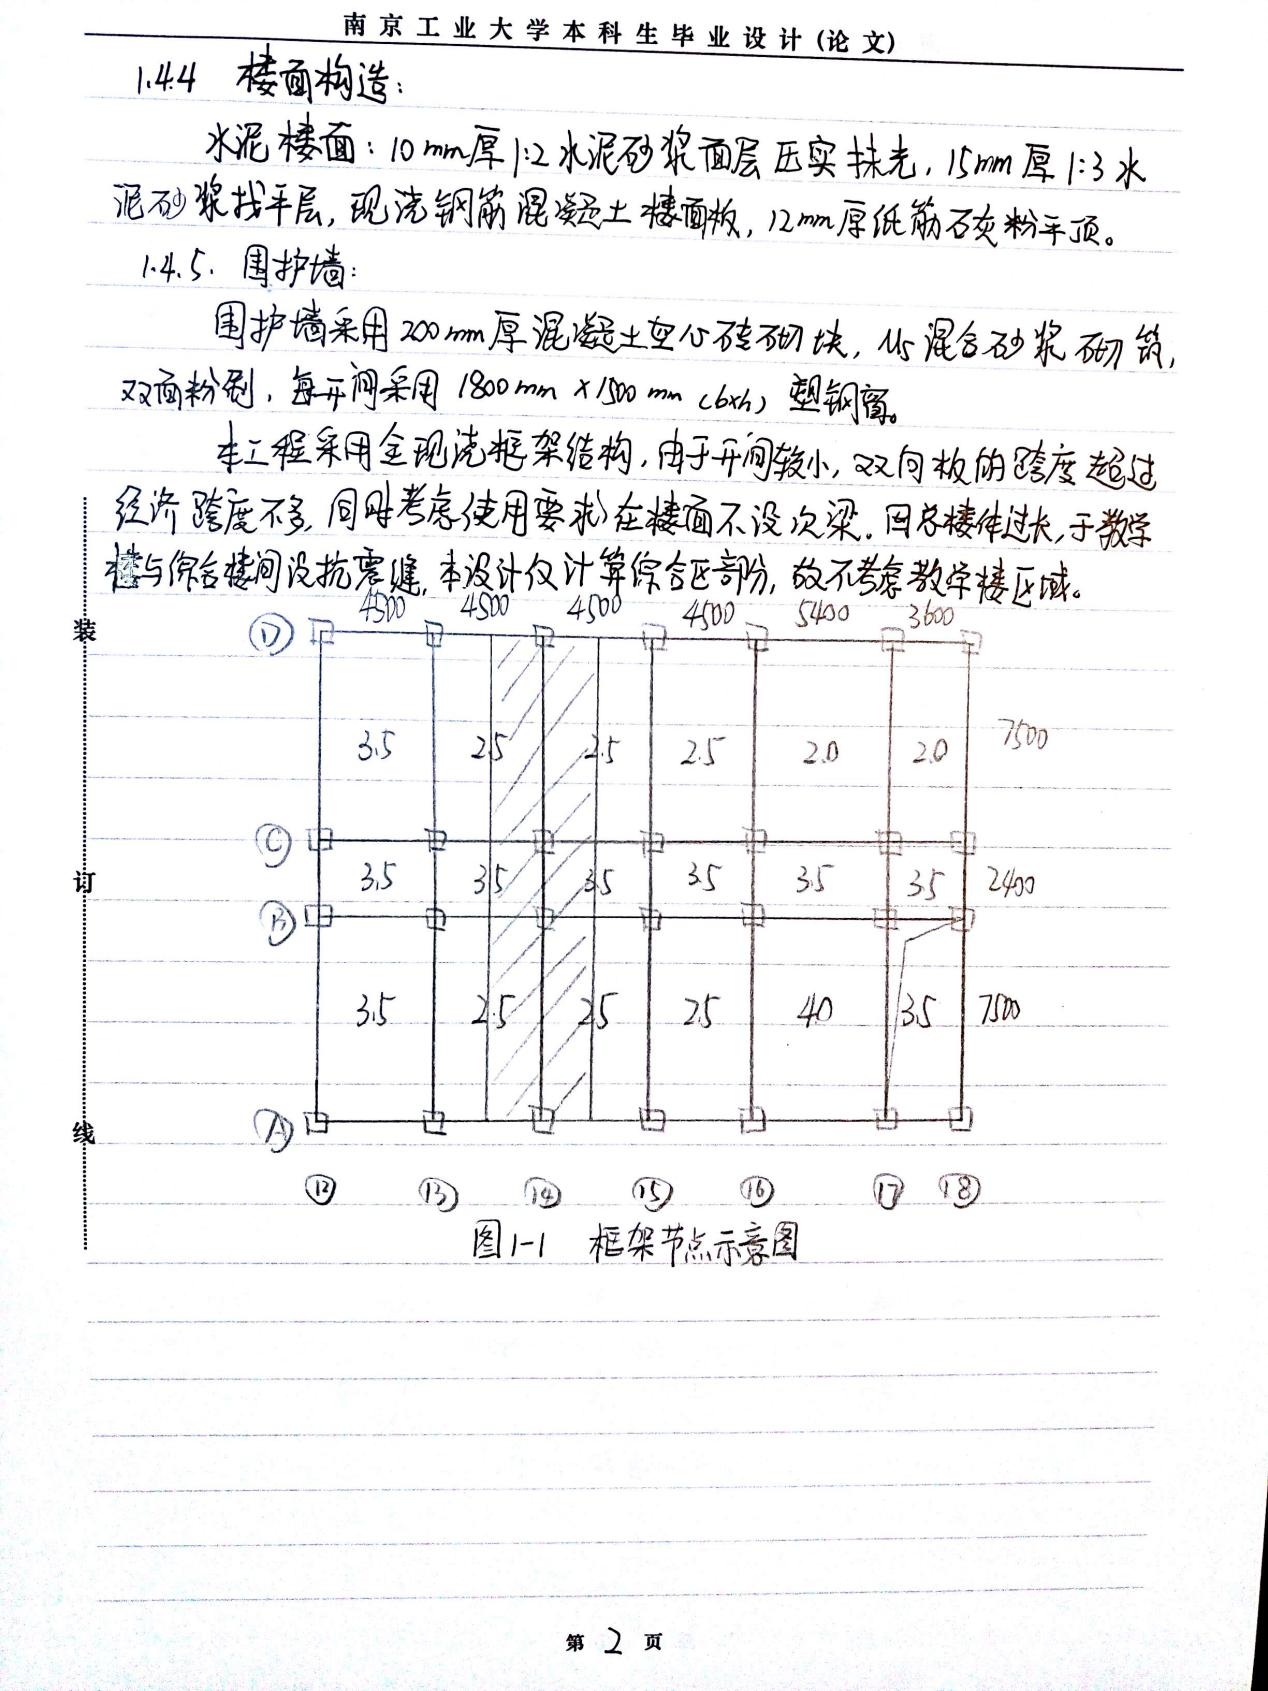 南京工业大学本科生毕业设计(论文)
1.4.4 楼面构造:
水泥楼面:10mm厚1:2水泥砂浆面层压实抹光,15mm厚1:3水
泥砂浆找平层,现浇钢筋混凝土楼面板,12mm厚纸筋石灰粉平顶。
1.4.5. 围护墙:
围护墙采用200mm厚混凝土空心砖砌块,M5混合砂浆砌筑,
双面粉刷,每开间采用1800mm×1500mm(b×h)塑钢窗。
本工程采用全现浇框架结构,由于开间较小,双向板的跨度超过
经济跨度不多,同时考虑使用要求,在楼面不设次梁。因总楼体过长,于教学
楼与综合楼间设抗震缝,本设计仅计算综合区部分,故不考虑教学楼区域。
4500 4500 4500 4500 5400 3600
装
D
3.5 2.5 2.5 2.5 2.0 2.0 7500
C
订
3.5 3.5 3.5 3.5 3.5 3.5 2400
B
3.5 2.5 2.5 2.5 4.0 3.5 7500
线
A
12 13 14 15 16 17 18
图1-1 框架节点示意图
第 2 页